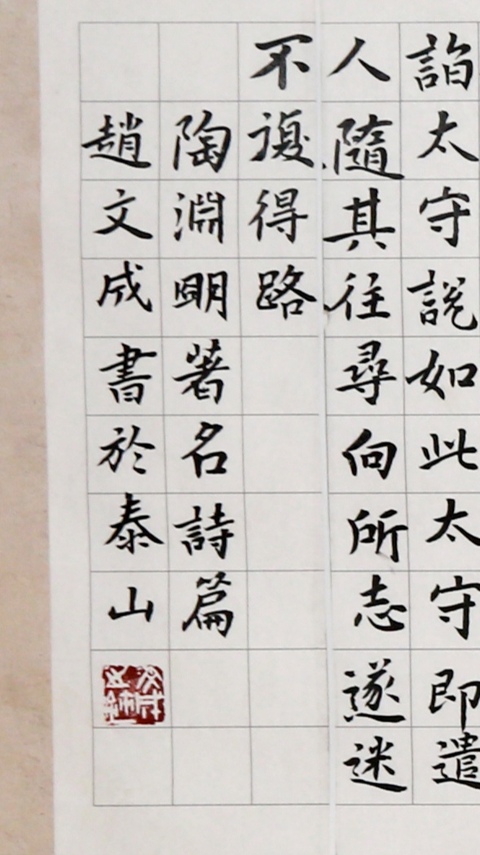 詣太守說如此太守即遣
人隨其往尋向所志遂迷
不復得路
陶淵明著名詩篇
趙文成書於泰山